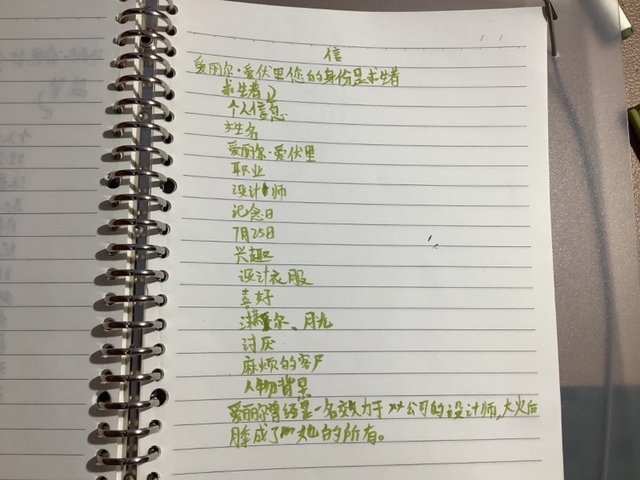 信
爱丽尔·爱伏里您的身份是求生者
求生者
个人信息
姓名
爱丽尔·爱伏里
职业
设计师
记念日
7月25日
兴趣
设计衣服
喜好
尔、月光
讨厌
麻烦的客户
人物背景
爱丽尔曾经是一名效力于XX公司的设计师,大火后
成了她的所有。